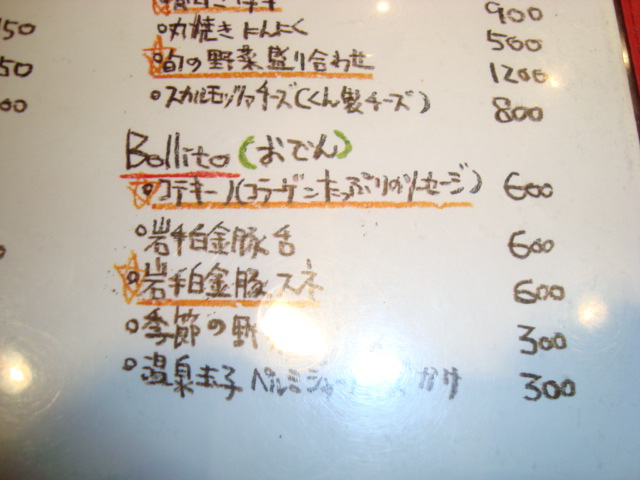 900
450
丸焼きにんにく 500
50
旬の野菜盛り合わせ 1200
00
スカルモッツァチーズ(くん製チーズ) 800
Bollito (おでん)
コテキーノ(コラーゲンたっぷりのソーセージ) 600
岩手白金豚舌 600
岩手白金豚スネ 600
季節の野 300
温泉玉子 ペルミジャーノ かけ 300